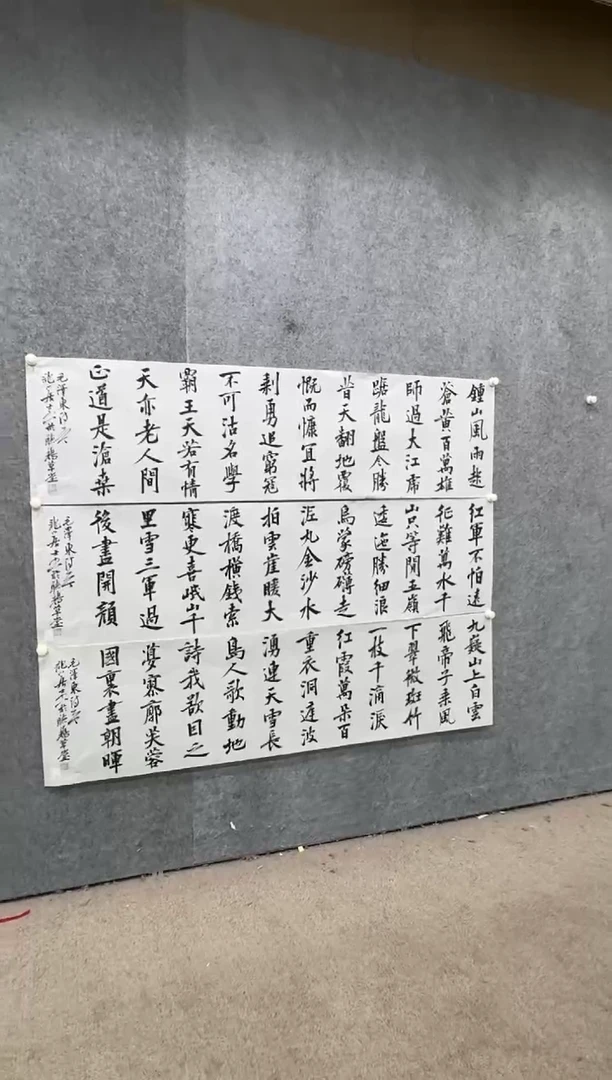 鍾山風雨起
蒼黃百萬雄
師過大江虎
踞龍盤今勝
昔天翻地覆
慨而慷宜將
剩勇追窮寇
不可沽名學
霸王天若有情
天亦老人間
正道是滄桑
毛澤東詩
草堂
紅軍不怕遠
征難萬水千
山只等閒五嶺
逶迤騰細浪
烏蒙磅礴走
泥丸金沙水
拍雲崖暖大
渡橋橫鐵索
寒更喜岷山千
里雪三軍過
後盡開顏
毛澤東詩
草堂
九嶷山上白雲
飛帝子乘風
下翠微斑竹
一枝千滴淚
紅霞萬朵百
重衣洞庭波
湧連天雪長
島人歌動地
詩我欲因之
夢寥廓芙蓉
國裏盡朝暉
毛澤東詩
草堂